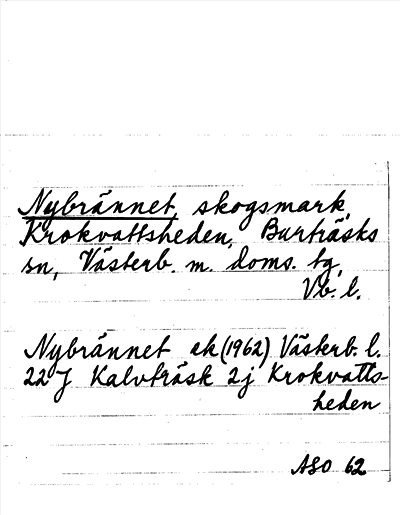 Nybrännet, skogsmark,
Krokvattsheden, Burträsks
sn, Västerb. m. doms. tg,
Vb. l.
Nybrännet ek (1962) Västerb. l.
22J Kalvträsk 2j Krokvatts-
heden
ASO 62